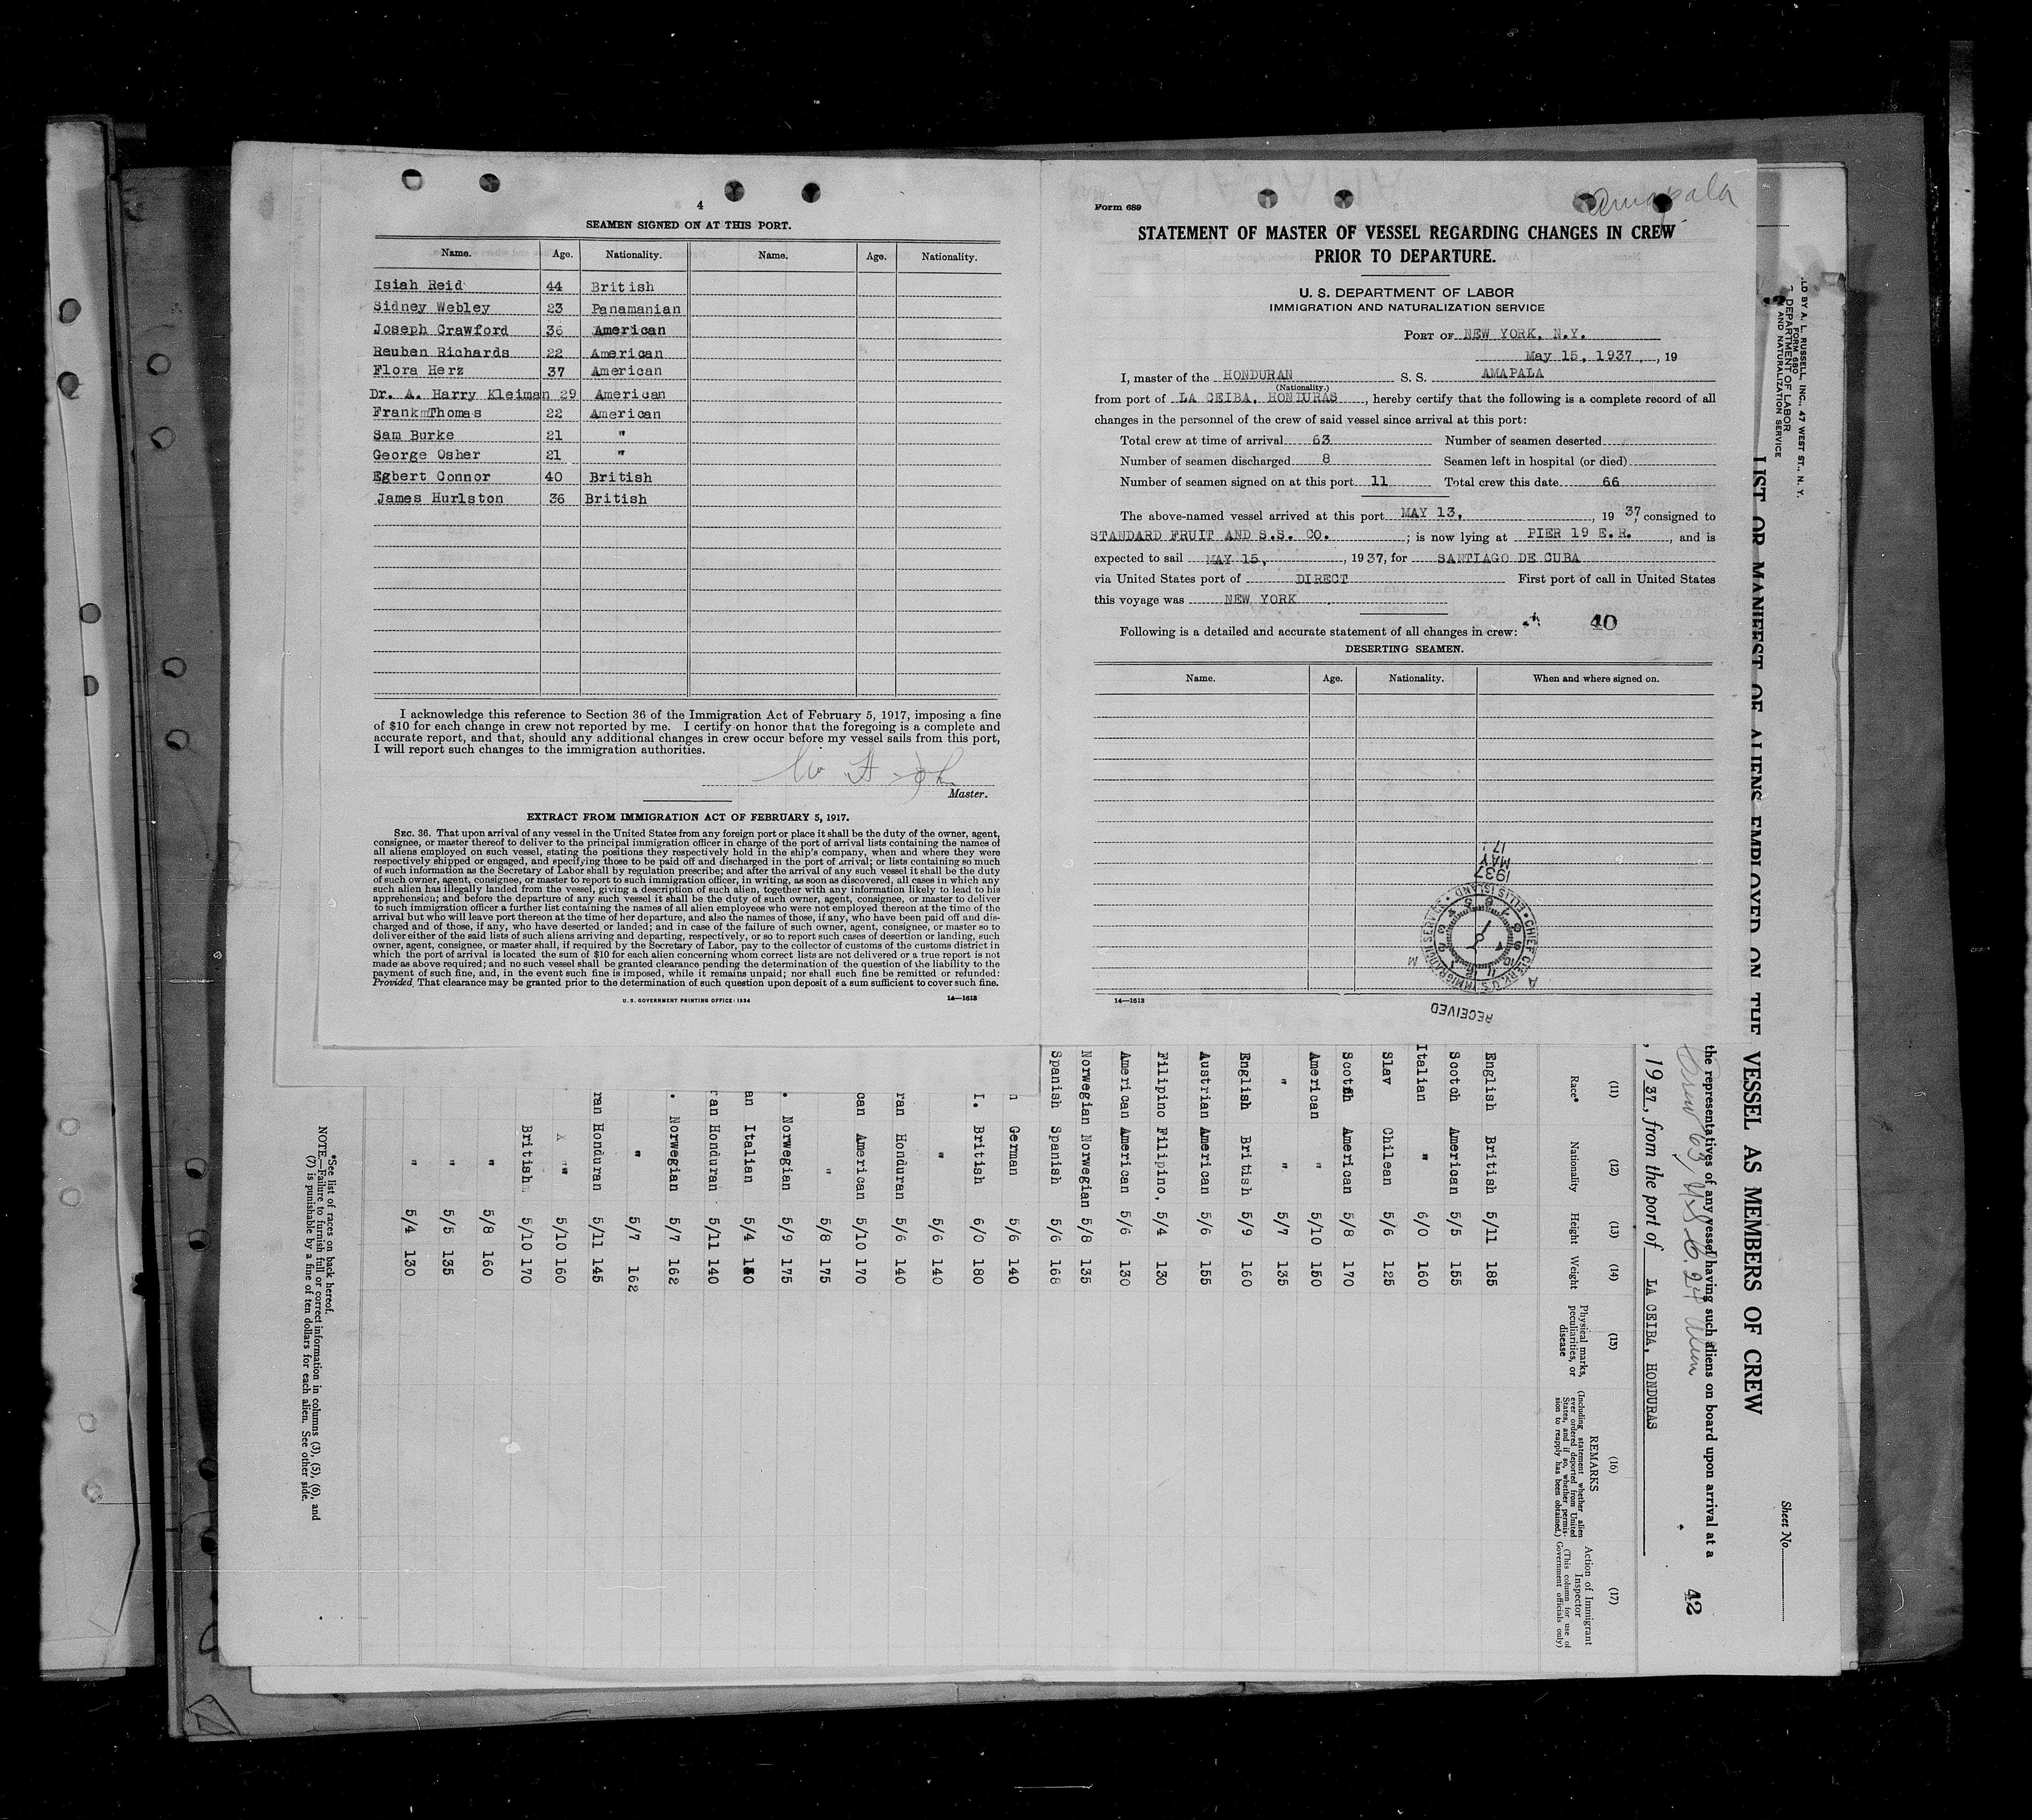 4
SEAMEN SIGNED ON AT THIS PORT.
Name. Age. Nationality. Name. Age. Nationality.
Isiah Reid 44 British
Sidney Webley 23 Panamanian
Joseph Crawford 36 American
Reuben Richards 22 American
Flora Herz 37 American
Dr. A. Harry Kleiman 29 American
FrankmThomas 22 American
Sam Burke 21 "
George Osher 21 "
Egbert Connor 40 British
James Hurlston 36 British
I acknowledge this reference to Section 36 of the Immigration Act of February 5, 1917, imposing a fine
of $10 for each change in crew not reported by me. I certify on honor that the foregoing is a complete and
accurate report, and that, should any additional changes in crew occur before my vessel sails from this port,
I will report such changes to the immigration authorities.
Master.
EXTRACT FROM IMMIGRATION ACT OF FEBRUARY 5, 1917.
SEC. 36. That upon arrival of any vessel in the United States from any foreign port or place it shall be the duty of the owner, agent,
consignee, or master thereof to deliver to the principal immigration officer in charge of the port of arrival lists containing the names of
all aliens employed on such vessel, stating the positions they respectively hold in the ship's company, when and where they were
respectively shipped or engaged, and specifying those to be paid off and discharged in the port of arrival; or lists containing so much
of such information as the Secretary of Labor shall by regulation prescribe; and after the arrival of any such vessel it shall be the duty
of such owner, agent, consignee, or master to report to such immigration officer, in writing, as soon as discovered, all cases in which any
such alien has illegally landed from the vessel, giving a description of such alien, together with any information likely to lead to his
apprehension; and before the departure of any such vessel it shall be the duty of such owner, agent, consignee, or master to deliver
to such immigration officer a further list containing the names of all alien employees who were not employed thereon at the time of the
arrival but who will leave port thereon at the time of her departure, and also the names of those, if any, who have been paid off and dis-
charged and of those, if any, who have deserted or landed; and in case of the failure of such owner, agent, consignee, or master so to
deliver either of the said lists of such aliens arriving and departing, respectively, or so to report such cases of desertion or landing, such
owner, agent, consignee, or master shall, if required by the Secretary of Labor, pay to the collector of customs of the customs district in
which the port of arrival is located the sum of $10 for each alien concerning whom correct lists are not delivered or a true report is not
made as above required; and no such vessel shall be granted clearance pending the determination of the question of the liability to the
payment of such fine, and, in the event such fine is imposed, while it remains unpaid; nor shall such fine be remitted or refunded:
Provided, That clearance may be granted prior to the determination of such question upon deposit of a sum sufficient to cover such fine.
U. S. GOVERNMENT PRINTING OFFICE: 1934 14—1613
Form 689
Amapala
STATEMENT OF MASTER OF VESSEL REGARDING CHANGES IN CREW
PRIOR TO DEPARTURE.
U. S. DEPARTMENT OF LABOR
IMMIGRATION AND NATURALIZATION SERVICE
PORT OF NEW YORK, N.Y.
May 15, 1937, 19
I, master of the HONDURAN S. S. AMAPALA
(Nationality.)
from port of LA CEIBA, HONDURAS, hereby certify that the following is a complete record of all
changes in the personnel of the crew of said vessel since arrival at this port:
Total crew at time of arrival 63 Number of seamen deserted
Number of seamen discharged 8 Seamen left in hospital (or died)
Number of seamen signed on at this port 11 Total crew this date 66
The above-named vessel arrived at this port MAY 13, , 19 37, consigned to
STANDARD FRUIT AND S.S. CO. ; is now lying at PIER 19 E.R. , and is
expected to sail MAY 15, , 1937, for SANTIAGO DE CUBA
via United States port of DIRECT First port of call in United States
this voyage was NEW YORK
Following is a detailed and accurate statement of all changes in crew: 40
DESERTING SEAMEN.
Name. Age. Nationality. When and where signed on.
RECEIVED
CHIEF CLERK, U.S. IMMIGRATION SERVICE • ELLIS ISLAND •
1937 MAY 17
14—1613
LD BY A. L. RUSSELL, INC., 47 WEST ST., N. Y.
FORM 680
DEPARTMENT OF LABOR
AND NATURALIZATION SERVICE
Sheet No.
LIST OR MANIFEST OF ALIENS EMPLOYED ON THE VESSEL AS MEMBERS OF CREW
the representatives of any vessel having such aliens on board upon arrival at a
42
, 1937, from the port of LA CEIBA, HONDURAS
(11) (12) (13) (14) (15) (16) (17)
Race* Nationality Height Weight Physical marks, peculiarities, or disease
REMARKS (Including statement whether alien ever ordered deported from United States, and if so, whether permission to reapply has been obtained.)
Action of Immigrant Inspector (This column for use of Government officials only)
English British 5/11 185
Scotch American 5/5 155
Italian " 6/0 160
Slav Chilean 5/6 125
Scotch American 5/8 170
American " 5/10 150
" " 5/7 135
English British 5/9 160
Austrian American 5/6 155
Filipino Filipino, 5/4 130
American American 5/6 130
Norwegian Norwegian 5/8 135
Spanish Spanish 5/6 168
German 5/6 140
I. British 6/0 180
" 5/6 140
ran Honduran 5/6 140
can American 5/10 170
" 5/8 175
. Norwegian 5/9 175
an Italian 5/4 130
ran Honduran 5/11 140
. Norwegian 5/7 162
" 5/7 162
ran Honduran 5/11 145
" 5/10 160
British 5/10 170
" 5/8 160
" 5/5 135
" 5/4 130
*See list of races on back hereof.
NOTE.—Failure to furnish full or correct information in columns (3), (5), (6), and
(7) is punishable by a fine of ten dollars for each alien. See other side.